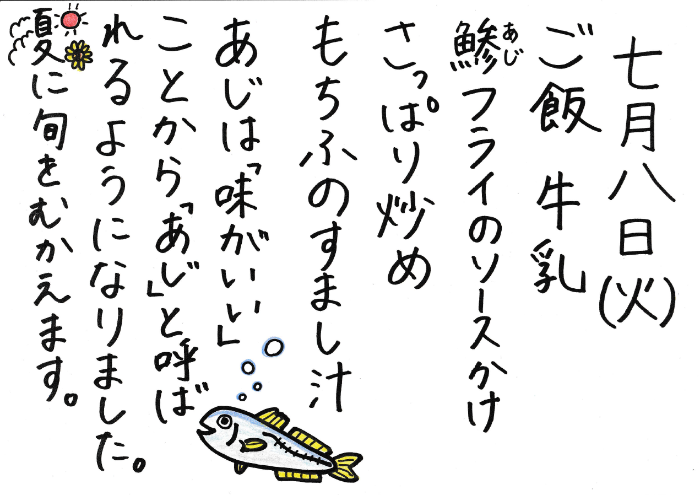 七月八日(火)
ご飯 牛乳
鯵フライのソースかけ
あじ
さっぱり炒め
もちふのすまし汁
あじは「味がいい」
ことから「あじ」と呼ば
れるようになりました。
夏に旬をむかえます。